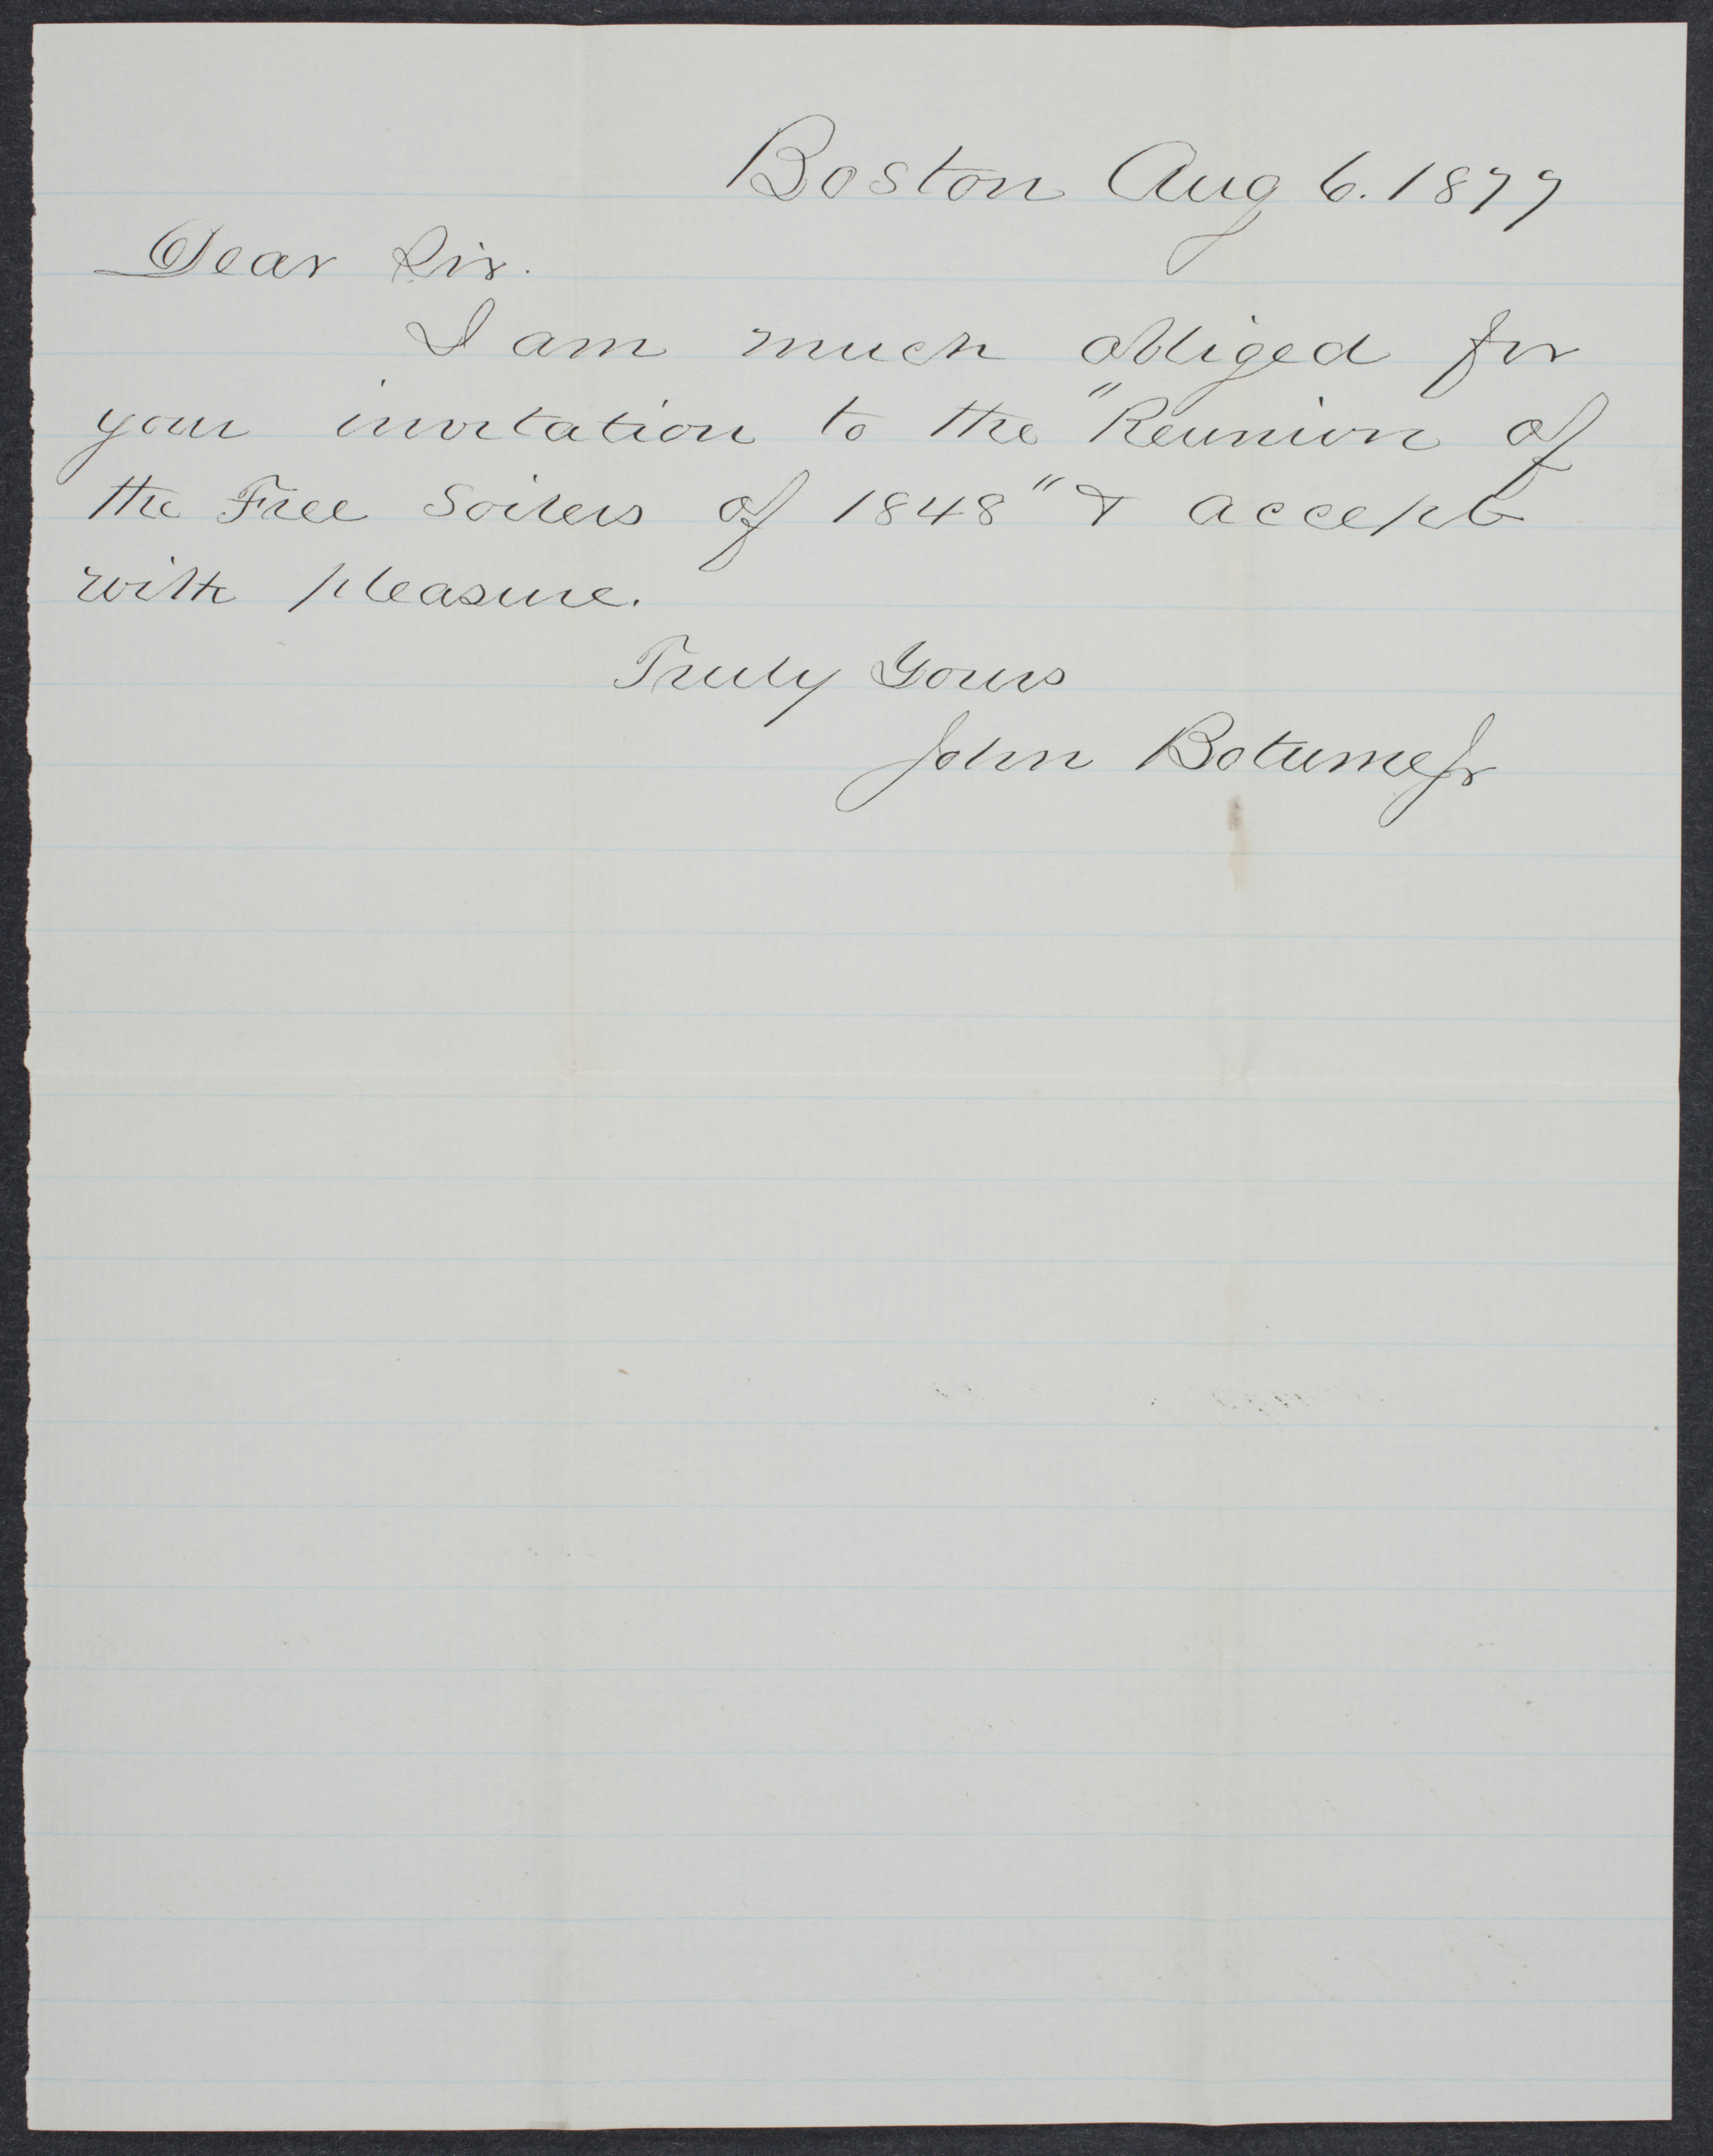 Boston Aug 6. 1877
Dear Sir.
I am much obliged for
your invitation to the "Reunion of
the Free Soilers of 1848" & accept
with pleasure.
Truly Yours
John Botume Jr